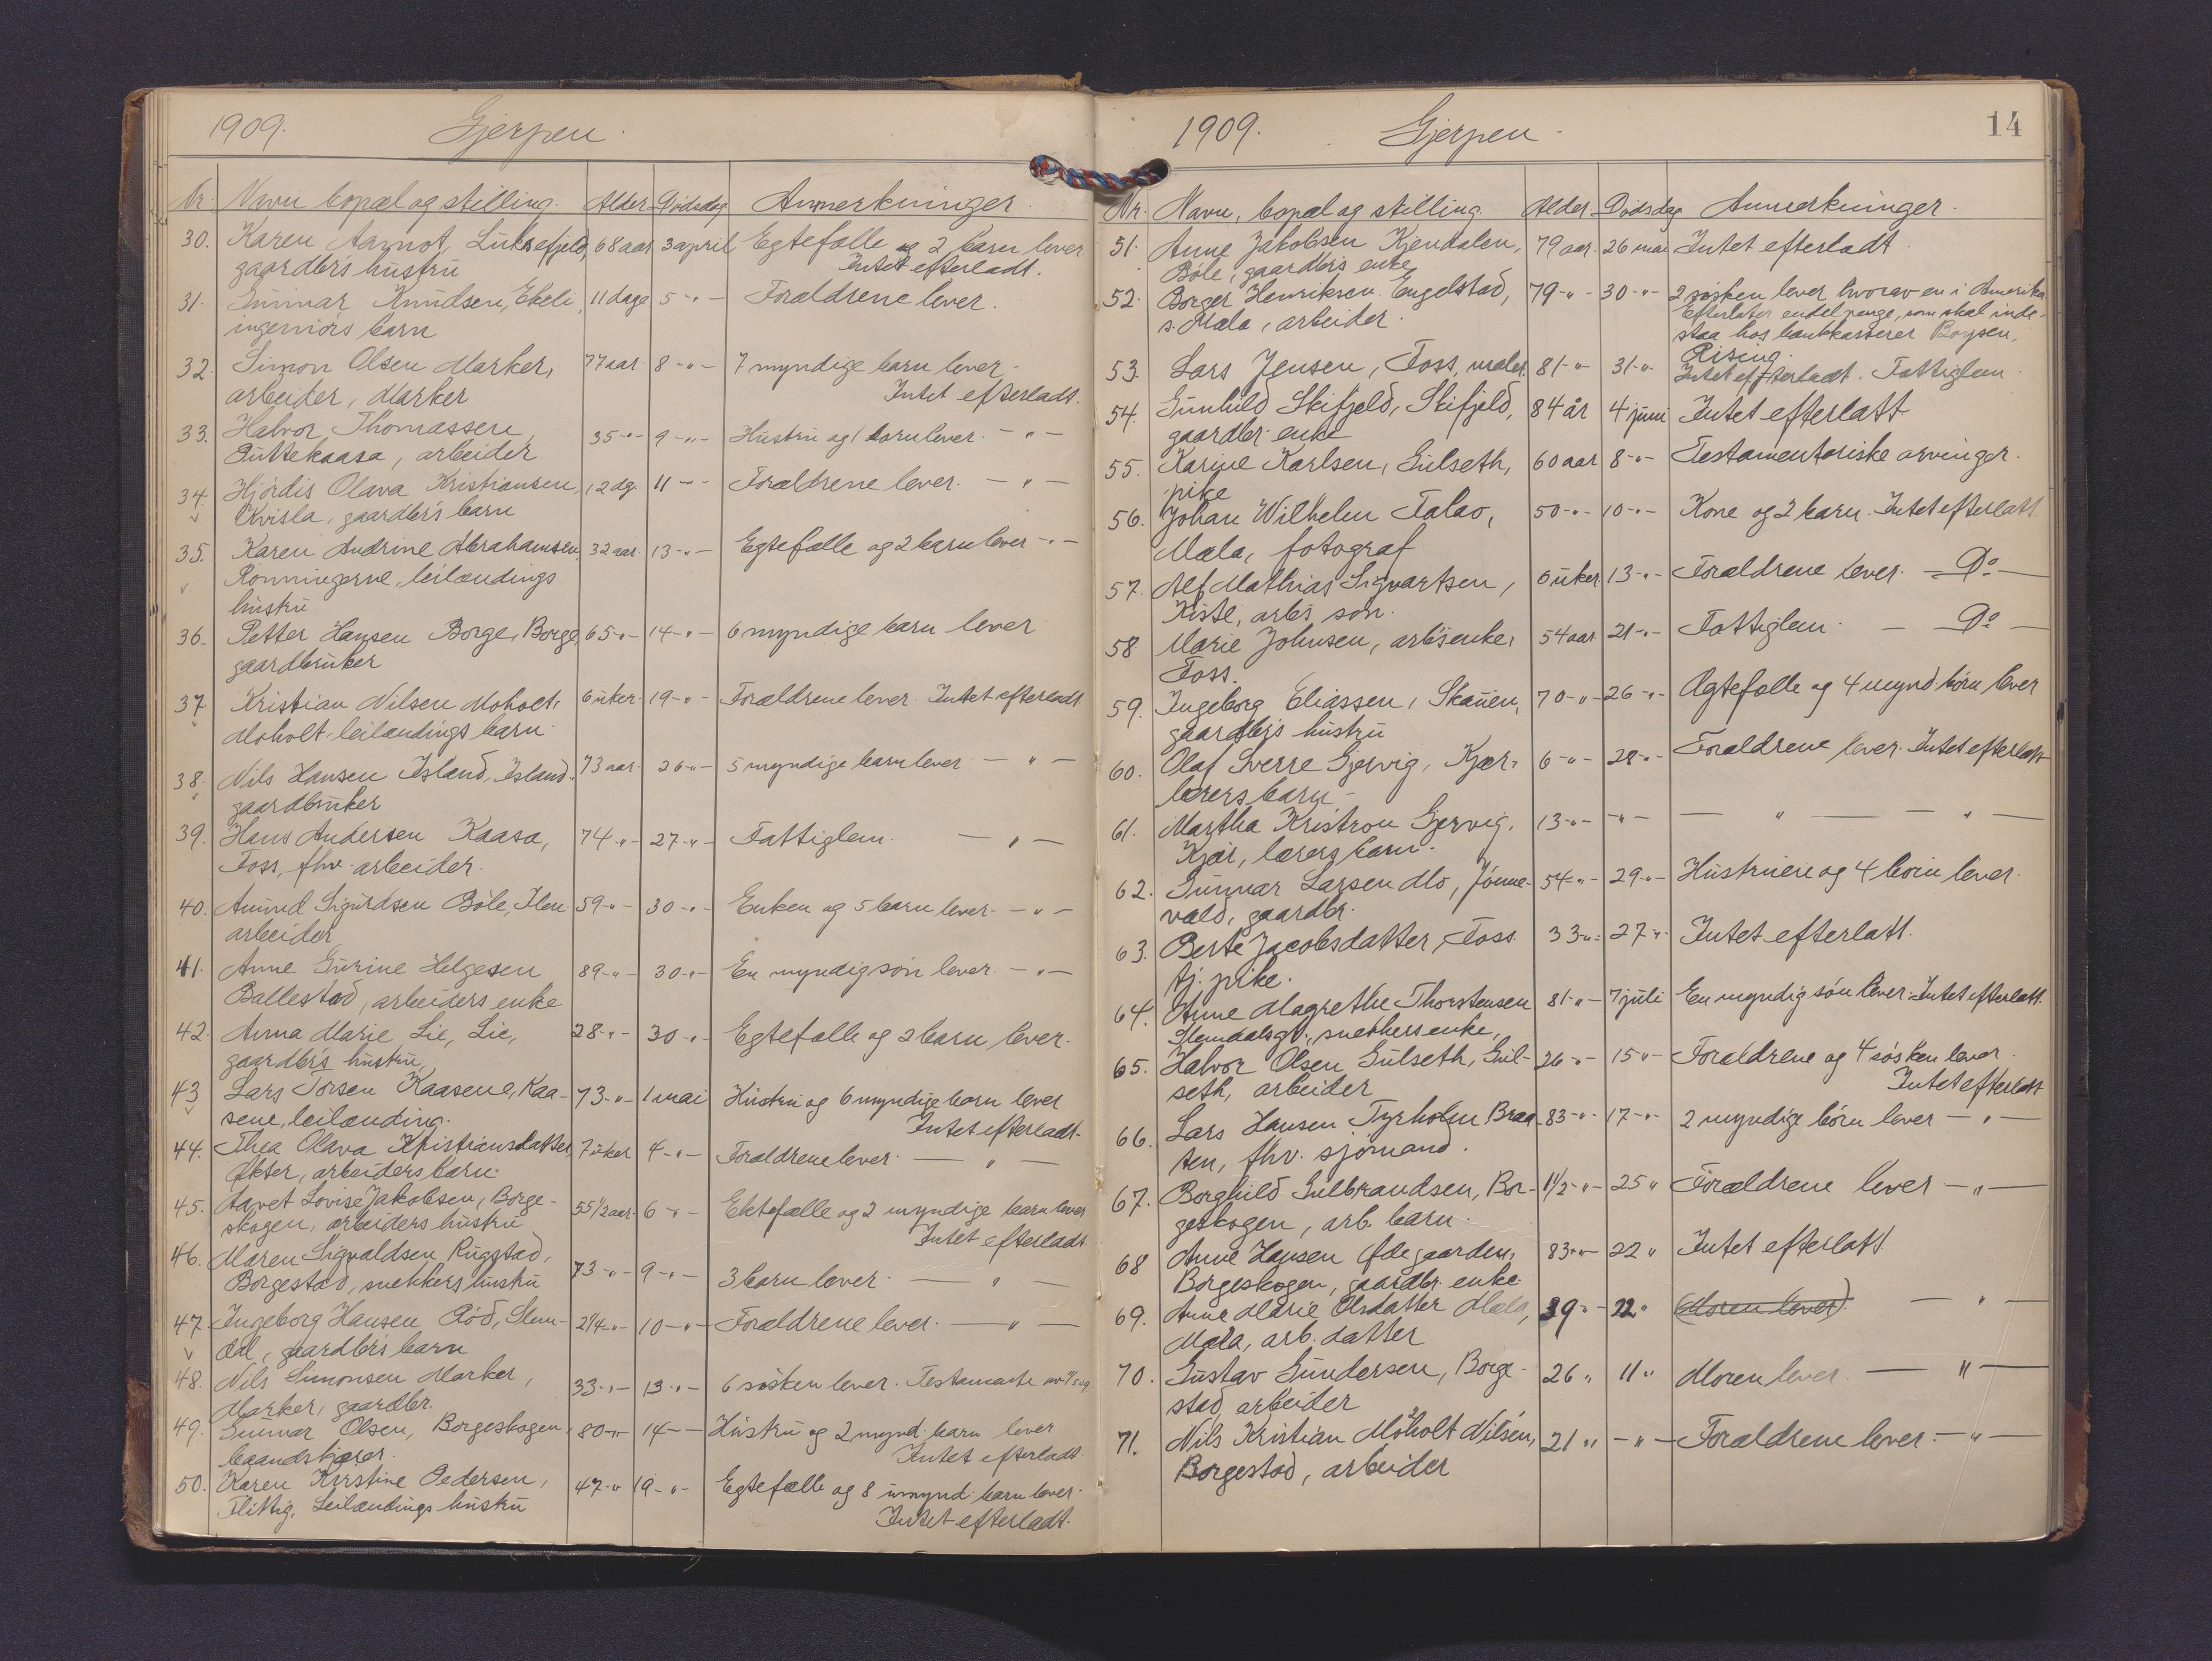 1909. Gjerpen.
Nr. Navn bopæl og stilling. Alder Dödsdag Anmerkninger.
30. Karen Aamot, Luksefjeld, 68 aar 3 april Egtefælle og 2 barn lever
gaardbr's hustru Intet efterladt.
31. Gunnar Knudsen, Ekeli, 11 dage 5 -"- Forældrene lever.
ingeniörs barn
32. Simon Olsen Marker, 77 aar 8 -"- 7 myndige barn lever.
arbeider, Marker Intet efterladt.
33. Halvor Thomassen 35 -"- 9 -"- Hustru og 1 barn lever. - " -
Puttekaasa, arbeider
34. Hjördis Olava Kristiansen, 12 dg. 11 -"- Forældrene lever. - " -
Kvisla, gaardbr's barn
35. Karen Andrine Abrahamsen, 32 aar 13 -"- Egtefælle og 2 barn lever - " -
Rönningerne, leilændings
hustru
36. Petter Hansen Borge, Borge, 65 -"- 14 -"- 6 myndige barn lever
gaardbruker
37 Kristian Nilsen Moholt, 6 uker 19 -"- Forældrene lever. Intet efterladt
Moholt. leilændings barn
38. Nils Hansen Island, Island. 73 aar. 26 -"- 5 myndige barn lever - " -
gaardbruker
39. Hans Andersen Kaasa, 74 -"- 27 -"- Fattiglem. - " -
Foss, fhv. arbeider.
40. Amund Sigurdsen Böle, Ilen 59 -"- 30 -"- Enken og 5 barn lever. - " -
arbeider
41. Anne Gurine Helgesen 89 -"- 30 -"- En myndig sön lever. - " -
Ballestad, arbeiders enke
42. Anna Marie Lie, Lie, 28 -"- 30 -"- Egtefælle og 2 barn lever.
gaardbr's hustru
43 Lars Torsen Kaasene, Kaa- 73 -"- 1 mai Hustru og 6 myndige barn lever
sene, leilænding. Intet efterladt.
44. Thea Olava Kristiansdatter, 7 uker 4 -"- Forældrene lever. - " -
Økter, arbeiders barn.
45. Aavet Lovise Jakobsen, Borge- 55 1/2 aar. 6 -"- Ektefælle og 2 myndige barn lever
skogen, arbeiders hustru Intet efterladt
46. Maren Sigvaldsen Rugstad, 73 -"- 9 -"- 3 barn lever. - " -
Borgestad, snekkers hustru
47. Ingeborg Hansen Röd, Slem- 2 1/4 -"- 10 -"- Forældrene lever. - " -
dal, gaardbr's barn
48. Nils Simonsen Marker, 33 -"- 13 -"- 6 sösken lever. Testamente av
Marker, gaardbr.
49. Gunnar Olsen, Borgeskogen, 80 -"- 14 - - Hustru og 2 mynd. barn lever
baandskjærer. Intet efterladt
50. Karen Kirstine Pedersen, 47 -"- 19 -"- Egtefælle og 8 umynd. barn lever.
Flittig. Leilændings hustru Intet efterladt.
1909. Gjerpen. 14
Nr. Navn, bopæl og stilling Alder. Dödsdag Anmerkninger.
51. Anne Jakobsen Kjendalen, 79 aar. 26 mai Intet efterladt.
Böle, gaardbr's enke
52. Borger Henriksen Engelstad, 79 -"- 30 -"- 2 sösken lever hvorav en i Amerika
s. Mæla, arbeider. Efterlater endel penge, som skal inde-
staa hos bankkasserer Boysen,
Rising.
53. Lars Jensen, Foss, maler. 81 -"- 31 -"- Intet efterladt. Fattiglem
54. Gunhild Skifjeld, Skifjeld, 84 år 4 juni Intet efterlatt
gaardbr. enke
55. Karine Karlsen, Gulseth, 60 aar 8 -"- Testamentariske arvinger.
pike
56. Johan Wilhelm Falao, 50 -"- 10 -"- Kone og 2 barn. Intet efterlatt
Mæla, fotograf
57. Alf Mathias Sigvartsen, 6 uker 13 -"- Forældrene lever. - Do -
Kiste, arb's sön.
58 Marie Johnsen, arb's enke, 54 aar 21 -"- Fattiglem. - Do -
Foss.
59. Ingeborg Eliassen, Skauen, 70 -"- 26 -"- Ægtefælle og 4 mynd. börn lever
gaardbr's hustru
60. Olaf Sverre Gjervig, Kjær, 6 -"- 28 -"- Forældrene lever. Intet efterlatt
lærers barn -
61. Martha Kristron Gjervig, 13 -"- -"- - " - - " -
Kjær, lærers barn.
62. Gunnar Larsen Mo, Jönne- 54 -"- 29 -"- Hustruen og 4 börn lever.
vald, gaardbr.
63. Berte Jacobsdatter, Foss 33 -"- 27 -"- Intet efterlatt.
tj. pike.
64. Anne Magrethe Thorstensen 81 -"- 7 juli En myndig sön lever. Intet efterlatt.
Slemdalsgt., snekkers enke,
65. Halvor Olsen Gulseth, Gul- 26 -"- 15 -"- Forældrene og 4 sösken lever.
seth, arbeider Intet efterlatt
66. Lars Hansen Tyrholm Braa- 83 -"- 17 -"- 2 myndige börn lever - " -
ten, fhv. sjömand.
67. Borghild Gulbrandsen, Bor- 1 1/2 -"- 25 " Forældrene lever - " -
geskogen, arb. barn.
68 Anne Hansen Ødegaarden, 83 -"- 22 " Intet efterlatt
Borgeskogen, gaardbr. enke.
69. Anne Marie Olsdatter Mæla, 39 -"- 22 " (Moren lever). - " -
Mæla, arb. datter
70. Gustav Gundersen, Borge- 26 " 11 " Moren lever. - " -
stad, arbeider
71. Nils Kristian Moholt Nilsen, 21 " - " - Forældrene lever. - " -
Borgestad, arbeider